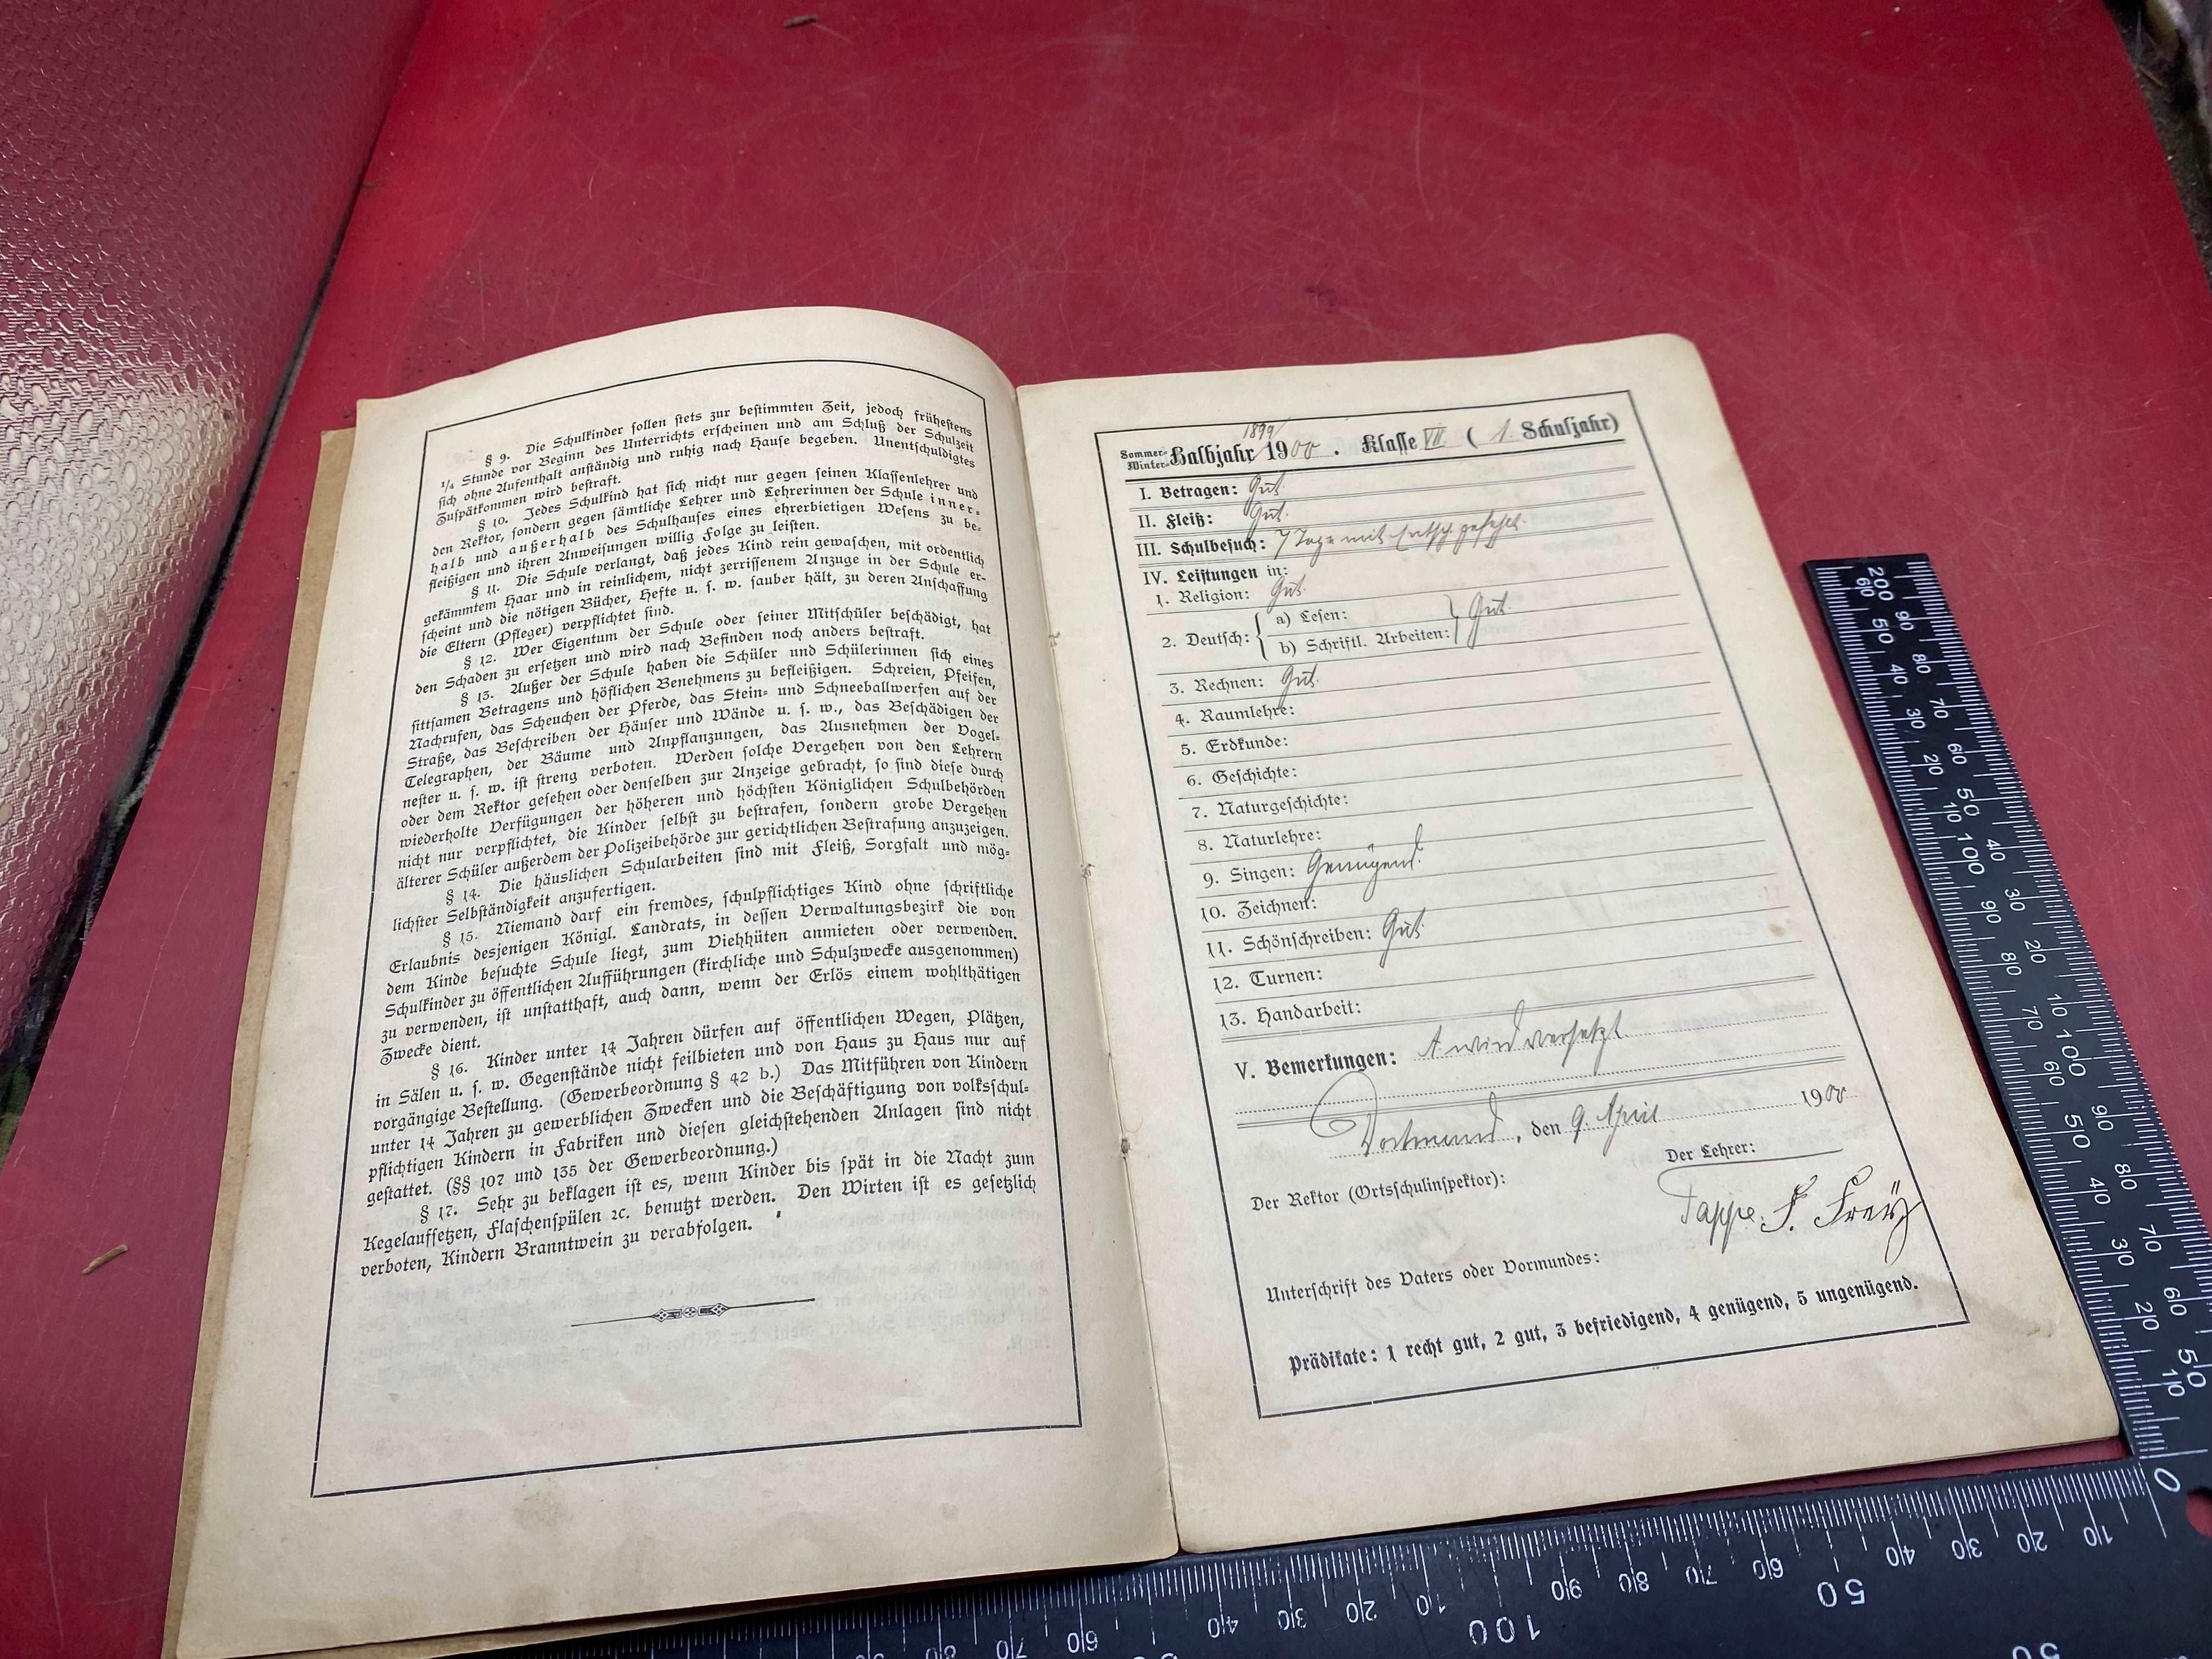 § 9. Die Schulkinder sollen stets zur bestimmten Zeit, jedoch frühestens
1/4 Stunde vor Beginn des Unterrichts erscheinen und am Schluß der Schulzeit
sich ohne Aufenthalt anständig und ruhig nach Hause begeben. Unentschuldigtes
Zuspätkommen wird bestraft.
§ 10. Jedes Schulkind hat sich nicht nur gegen seinen Klassenlehrer und
den Rektor, sondern gegen sämtliche Lehrer und Lehrerinnen der Schule inner-
halb und außerhalb des Schulhauses eines ehrerbietigen Wesens zu be-
fleißigen und ihren Anweisungen willig Folge zu leisten.
§ 11. Die Schule verlangt, daß jedes Kind rein gewaschen, mit ordentlich
gekämmtem Haar und in reinlichem, nicht zerrissenem Anzuge in der Schule er-
scheint und die nötigen Bücher, Hefte u. s. w. sauber hält, zu deren Anschaffung
die Eltern (Pfleger) verpflichtet sind.
§ 12. Wer Eigentum der Schule oder seiner Mitschüler beschädigt, hat
den Schaden zu ersetzen und wird nach Befinden noch anders bestraft.
§ 13. Außer der Schule haben die Schüler und Schülerinnen sich eines
sittsamen Betragens und höflichen Benehmens zu befleißigen. Schreien, Pfeifen,
Nachrufen, das Scheuchen der Pferde, das Stein- und Schneeballwerfen auf der
Straße, das Beschreiben der Häuser und Wände u. s. w., das Beschädigen der
Telegraphen, der Bäume und Anpflanzungen, das Ausnehmen der Vogel-
nester u. s. w. ist streng verboten. Werden solche Vergehen von den Lehrern
oder dem Rektor gesehen oder denselben zur Anzeige gebracht, so sind diese durch
wiederholte Verfügungen der höheren und höchsten Königlichen Schulbehörden
nicht nur verpflichtet, die Kinder selbst zu bestrafen, sondern grobe Vergehen
älterer Schüler außerdem der Polizeibehörde zur gerichtlichen Bestrafung anzuzeigen.
§ 14. Die häuslichen Schularbeiten sind mit Fleiß, Sorgfalt und mög-
lichster Selbständigkeit anzufertigen.
§ 15. Niemand darf ein fremdes, schulpflichtiges Kind ohne schriftliche
Erlaubnis desjenigen Königl. Landrats, in dessen Verwaltungsbezirk die von
dem Kinde besuchte Schule liegt, zum Viehhüten anmieten oder verwenden.
Schulkinder zu öffentlichen Aufführungen (kirchliche und Schulzwecke ausgenommen)
zu verwenden, ist unstatthaft, auch dann, wenn der Erlös einem wohlthätigen
Zwecke dient.
§ 16. Kinder unter 14 Jahren dürfen auf öffentlichen Wegen, Plätzen,
in Sälen u. s. w. Gegenstände nicht feilbieten und von Haus zu Haus nur auf
vorgängige Bestellung. (Gewerbeordnung § 42 b.) Das Mitführen von Kindern
unter 14 Jahren zu gewerblichen Zwecken und die Beschäftigung von volksschul-
pflichtigen Kindern in Fabriken und diesen gleichstehenden Anlagen sind nicht
gestattet. (§§ 107 und 135 der Gewerbeordnung.)
§ 17. Sehr zu beklagen ist es, wenn Kinder bis spät in die Nacht zum
Kegelaufsetzen, Flaschenspülen ꝛc. benutzt werden. Den Wirten ist es gesetzlich
verboten, Kindern Branntwein zu verabfolgen.
Sommer-
Winter- Halbjahr 1899/1900. Klasse VII (1. Schuljahr)
I. Betragen: Gut.
II. Fleiß: Gut.
III. Schulbesuch: 7 Tage mit Entsch. gefehlt.
IV. Leistungen in:
1. Religion: Gut.
2. Deutsch: { a) Lesen:
b) Schriftl. Arbeiten: } Gut.
3. Rechnen: Gut.
4. Raumlehre:
5. Erdkunde:
6. Geschichte:
7. Naturgeschichte:
8. Naturlehre:
9. Singen: Genügend.
10. Zeichnen:
11. Schönschreiben: Gut
12. Turnen:
13. Handarbeit:
V. Bemerkungen: A wird versetzt
Dortmund, den 9. April 1900
Der Rektor (Ortsschulinspektor): Der Lehrer:
Tappe.
Unterschrift des Vaters oder Vormundes:
Prädikate: 1 recht gut, 2 gut, 3 befriedigend, 4 genügend, 5 ungenügend.